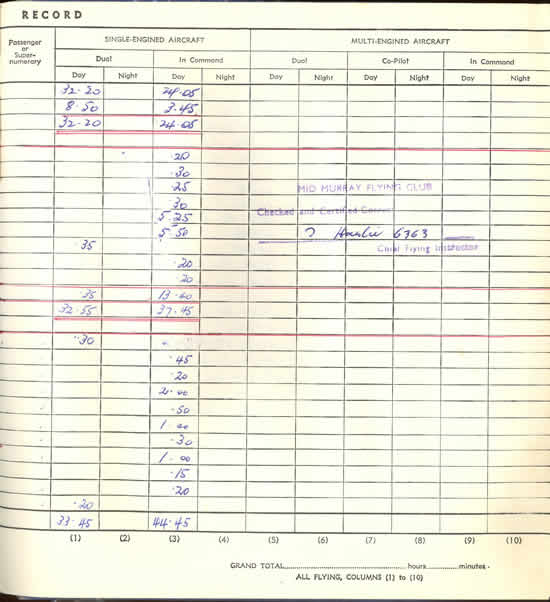 RECORD
Passenger or Super-numerary SINGLE-ENGINED AIRCRAFT MULTI-ENGINED AIRCRAFT
Dual In Command Dual Co-Pilot In Command
Day Night Day Night Day Night Day Night Day Night
32·20 24·05
8·50 3·45
32·20 24·05
·20
·30
·25 MID MURRAY FLYING CLUB
·30
5·25 Checked and Certified Correct
5·50 6363
·35 Chief Flying Instructor
·20
·20
·35 13·40
32·55 37·45
·30
·45
·20
2·00
·50
1·00
·30
1·00
·15
·20
·20
33·45 44·45
(1) (2) (3) (4) (5) (6) (7) (8) (9) (10)
GRAND TOTAL hours minutes
ALL FLYING, COLUMNS (1) to (10)